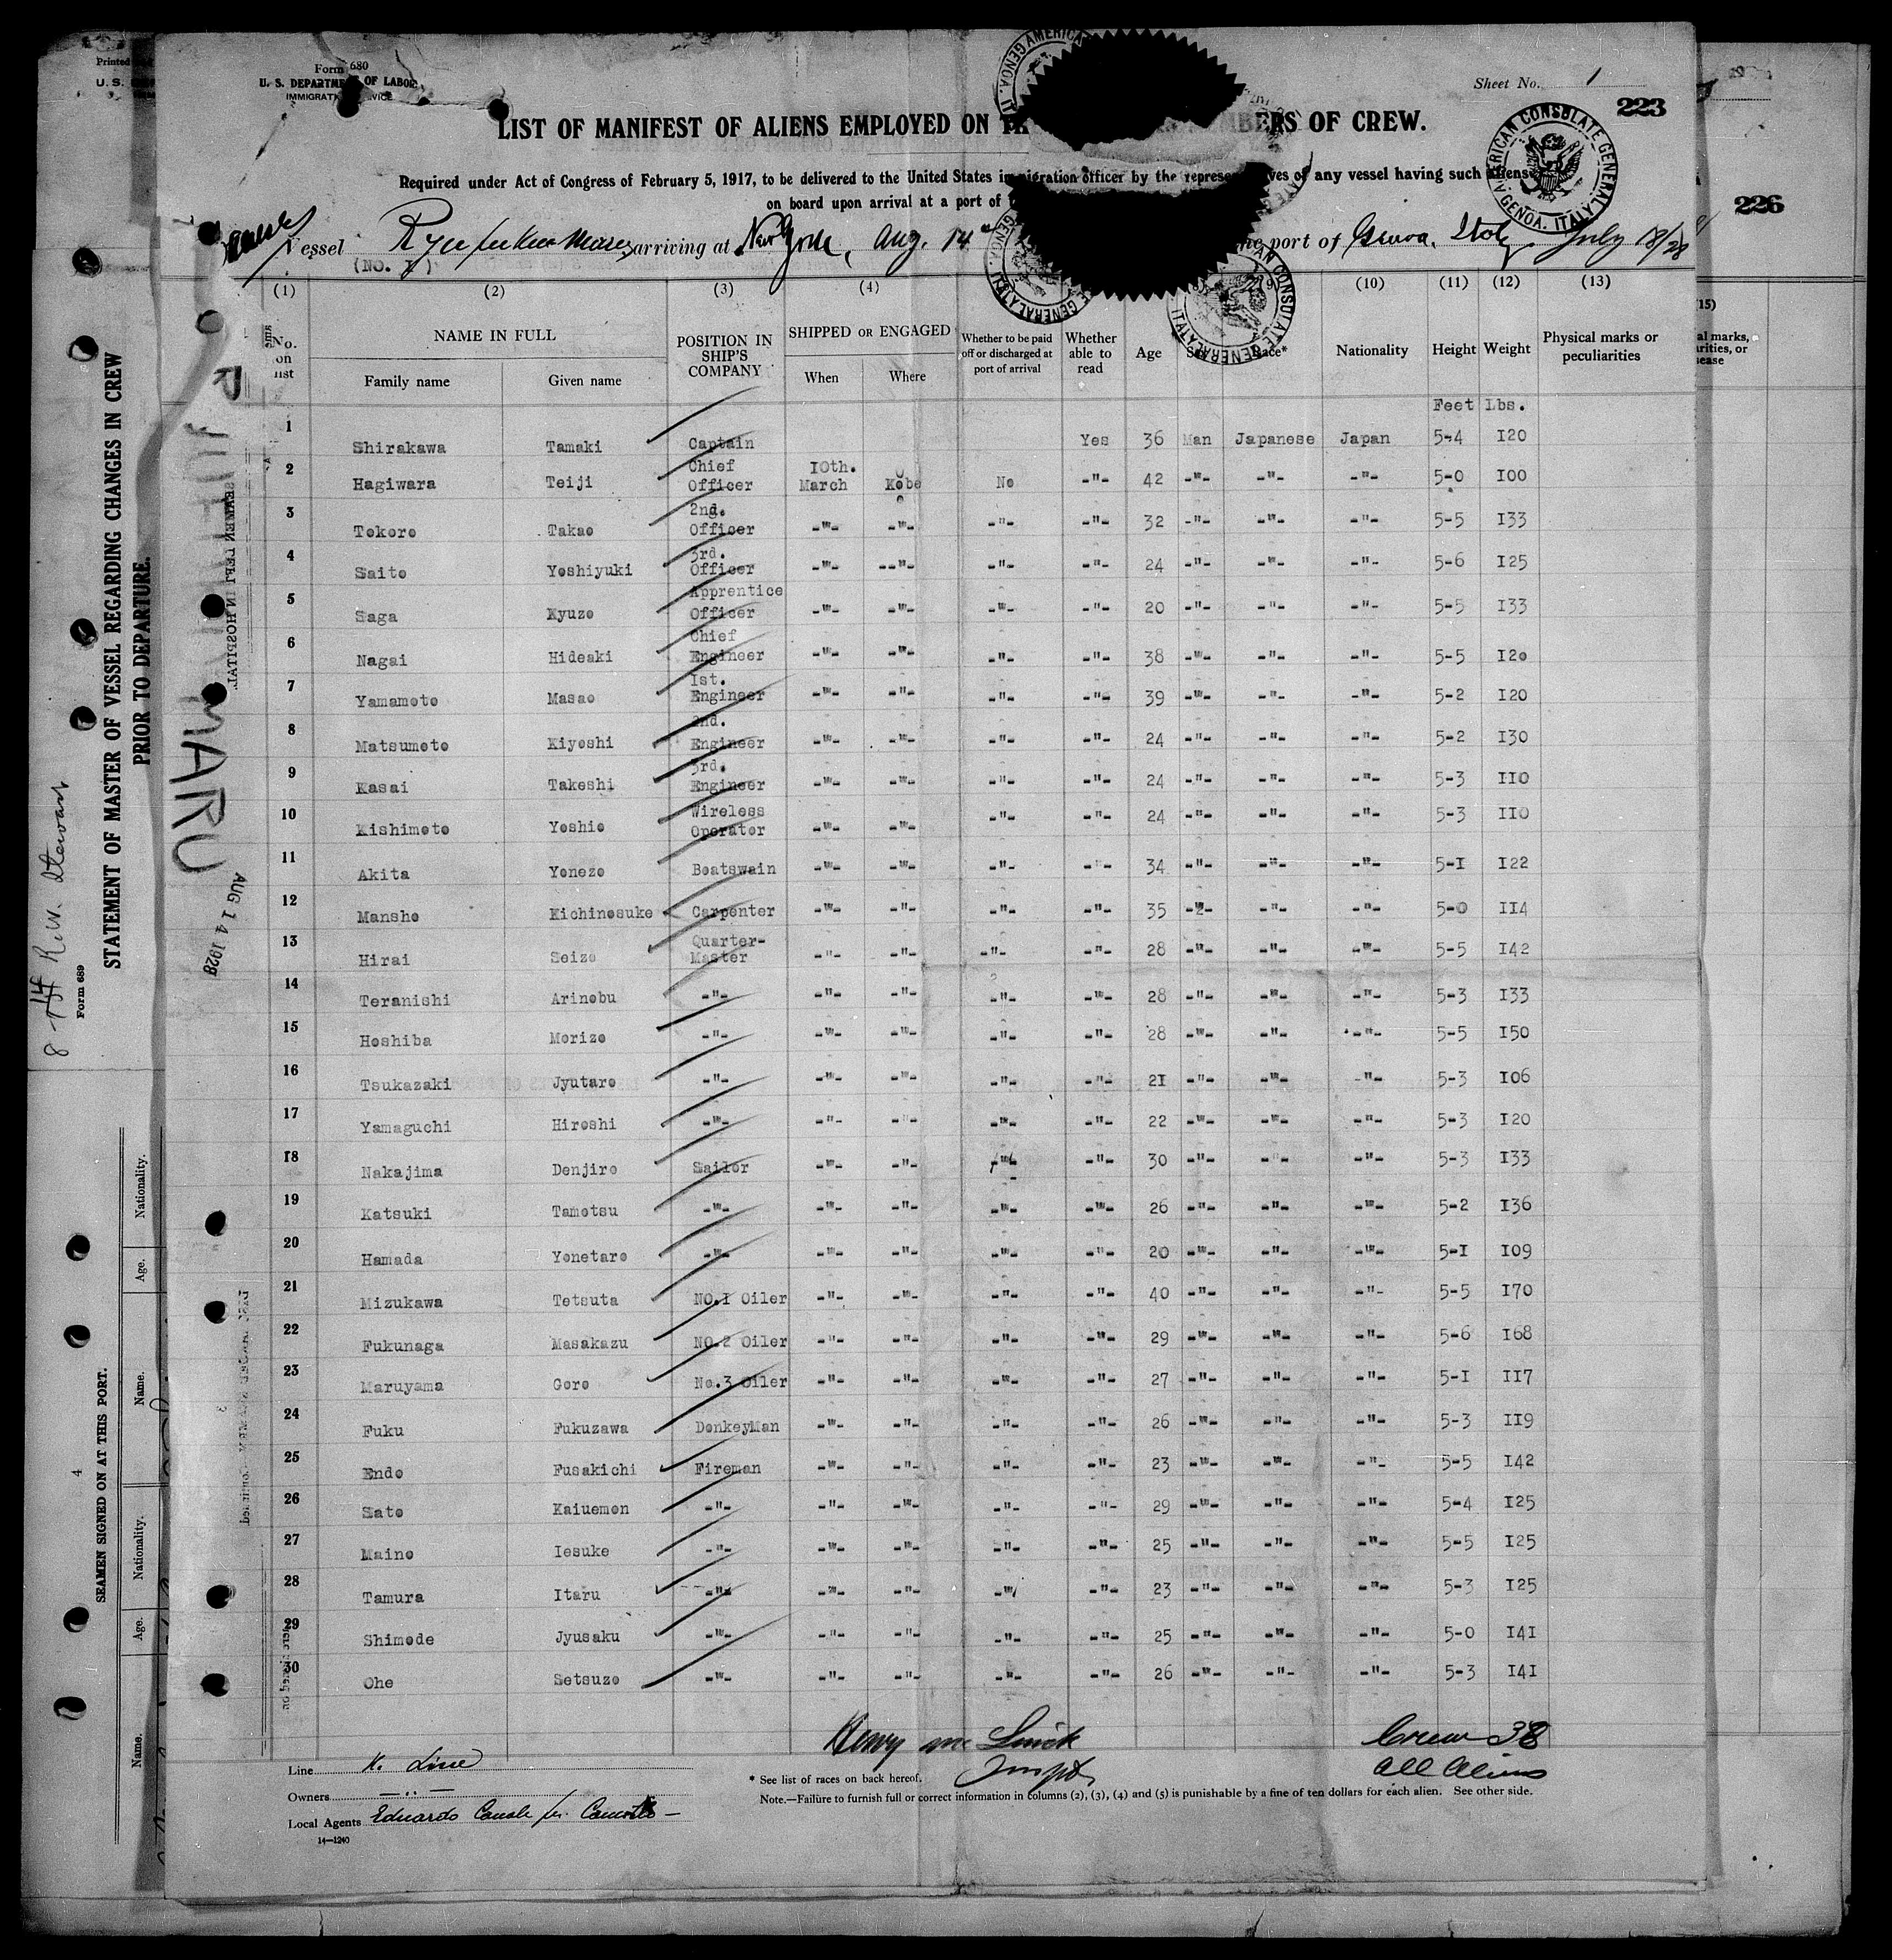 Form 680
U. S. DEPARTMENT OF LABOR
IMMIGRATION SERVICE
Sheet No. 1
223
LIST OF MANIFEST OF ALIENS EMPLOYED ON BERS OF CREW.
Required under Act of Congress of February 5, 1917, to be delivered to the United States immigration officer by the representatives of any vessel having such aliens
on board upon arrival at a port of
226
Vessel arriving at New York, Aug. 14 port of Genoa, Italy. July 18/28
(NO. I)
AMERICAN CONSULATE GENERAL
GENOA, ITALY
(1) (2) (3) (4) (9) (10) (11) (12) (13)
No. on list NAME IN FULL POSITION IN SHIP'S COMPANY SHIPPED OR ENGAGED Whether to be paid off or discharged at port of arrival Whether able to read Age Race* Nationality Height Weight Physical marks or peculiarities
Family name Given name When Where
Feet Lbs.
1 Shirakawa Tamaki Captain Yes 36 Man Japanese Japan 5-4 I20
2 Hagiwara Teiji Chief Officer I0th. March Kobe No -"- 42 -"- -"- -"- 5-0 I00
3 Tokoro Takao 2nd. Officer -"- -"- -"- -"- 32 -"- -"- -"- 5-5 I33
4 Saito Yoshiyuki 3rd. Officer -"- --"- -"- -"- 24 -"- -"- -"- 5-6 I25
5 Saga Kyuzo Apprentice Officer -"- -"- -"- -"- 20 -"- -"- -"- 5-5 I33
6 Nagai Hideaki Chief Engineer -"- -"- -"- -"- 38 -"- -"- -"- 5-5 I20
7 Yamamoto Masao Ist. Engineer -"- -"- -"- -"- 39 -"- -"- -"- 5-2 I20
8 Matsumoto Kiyoshi 2nd. Engineer -"- -"- -"- -"- 24 -"- -"- -"- 5-2 I30
9 Kasai Takeshi 3rd. Engineer -"- -"- -"- -"- 24 -"- -"- -"- 5-3 II0
10 Kishimoto Yoshio Wireless Operator -"- -"- -"- -"- 24 -"- -"- -"- 5-3 II0
11 Akita Yonezo Boatswain -"- -"- -"- -"- 34 -"- -"- -"- 5-I I22
12 Mansho Kichinosuke Carpenter -"- -"- -"- -"- 35 -"- -"- -"- 5-0 II4
13 Hirai Seizo Quarter-Master -"- -"- -"- -"- 28 -"- -"- -"- 5-5 I42
14 Teranishi Arinobu -"- -"- -"- -"- -"- 28 -"- -"- -"- 5-3 I33
15 Hoshiba Morizo -"- -"- -"- -"- -"- 28 -"- -"- -"- 5-5 I50
16 Tsukazaki Jyutaro -"- -"- -"- -"- -"- 2I -"- -"- -"- 5-3 I06
17 Yamaguchi Hiroshi -"- -"- -"- -"- -"- 22 -"- -"- -"- 5-3 I20
18 Nakajima Denjiro Sailor -"- -"- -"- -"- 30 -"- -"- -"- 5-3 I33
19 Katsuki Tamotsu -"- -"- -"- -"- -"- 26 -"- -"- -"- 5-2 I36
20 Hamada Yonetaro -"- -"- -"- -"- -"- 20 -"- -"- -"- 5-I I09
21 Mizukawa Tetsuta NO.I Oiler -"- -"- -"- -"- 40 -"- -"- -"- 5-5 I70
22 Fukunaga Masakazu NO.2 Oiler -"- -"- -"- -"- 29 -"- -"- -"- 5-6 I68
23 Maruyama Goro No.3 Oiler -"- -"- -"- -"- 27 -"- -"- -"- 5-I II7
24 Fuku Fukuzawa DonkeyMan -"- -"- -"- -"- 26 -"- -"- -"- 5-3 II9
25 Endo Fusakichi Fireman -"- -"- -"- -"- 23 -"- -"- -"- 5-5 I42
26 Sato Kaiuemon -"- -"- -"- -"- -"- 29 -"- -"- -"- 5-4 I25
27 Maino Iesuke -"- -"- -"- -"- -"- 25 -"- -"- -"- 5-5 I25
28 Tamura Itaru -"- -"- -"- -"- -"- 23 -"- -"- -"- 5-3 I25
29 Shimode Jyusaku -"- -"- -"- -"- -"- 25 -"- -"- -"- 5-0 I4I
30 Ohe Setsuzo -"- -"- -"- -"- -"- 26 -"- -"- -"- 5-3 I4I
Crew 38
All Aliens
Line K. Line
Owners
Local Agents Eduardo
14—1240
* See list of races on back hereof.
Note.—Failure to furnish full or correct information in columns (2), (3), (4) and (5) is punishable by a fine of ten dollars for each alien. See other side.
MARU
AUG 14 1928
STATEMENT OF MASTER OF VESSEL REGARDING CHANGES IN CREW
PRIOR TO DEPARTURE.
Form 689
SEAMEN SIGNED ON AT THIS PORT.
Name. Age. Nationality. Name. Age. Nationality.